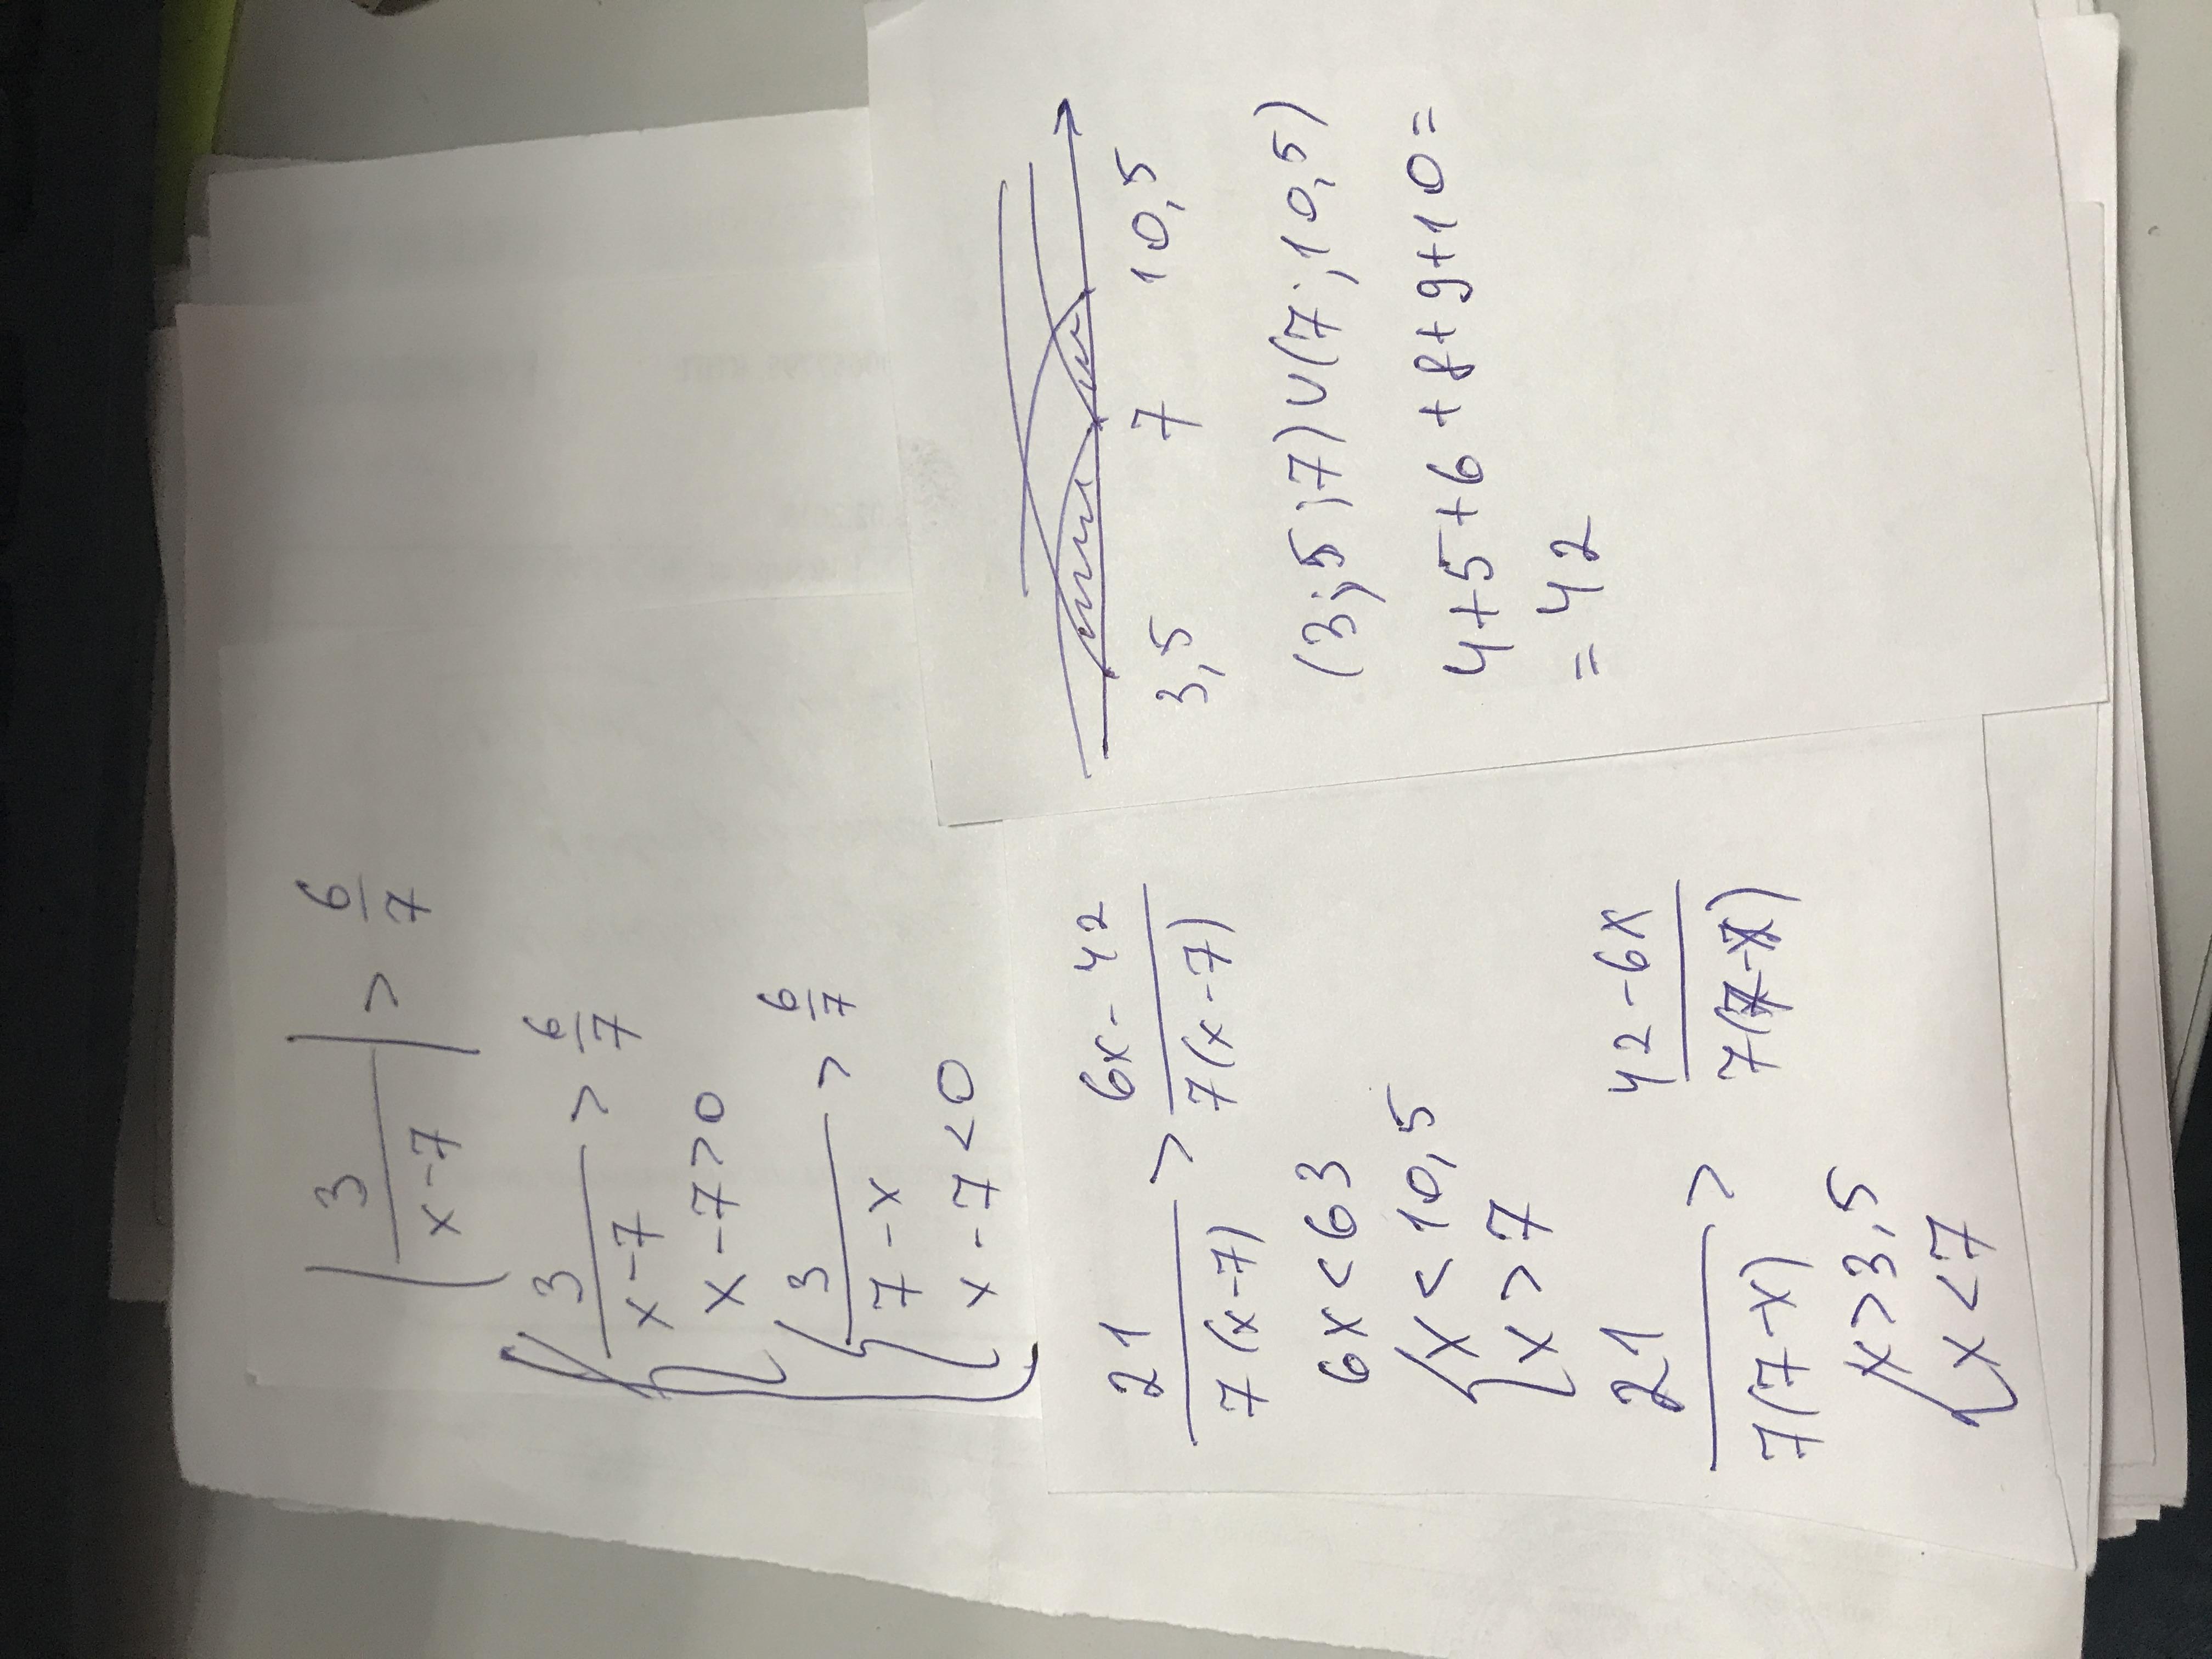 |3/(x-7)| > 6/7
3/(x-7) > 6/7
x-7>0
3/(7-x) > 6/7
x-7<0
21/(7(x-7)) > (6x-42)/(7(x-7))
6x<63
{x<10,5
{x>7
21/(7(7-x)) > (42-6x)/(7(7-x))
{x>3,5
{x<7
3,5 7 10,5
(3,5;7)∪(7;10,5)
4+5+6+8+9+10=
=42